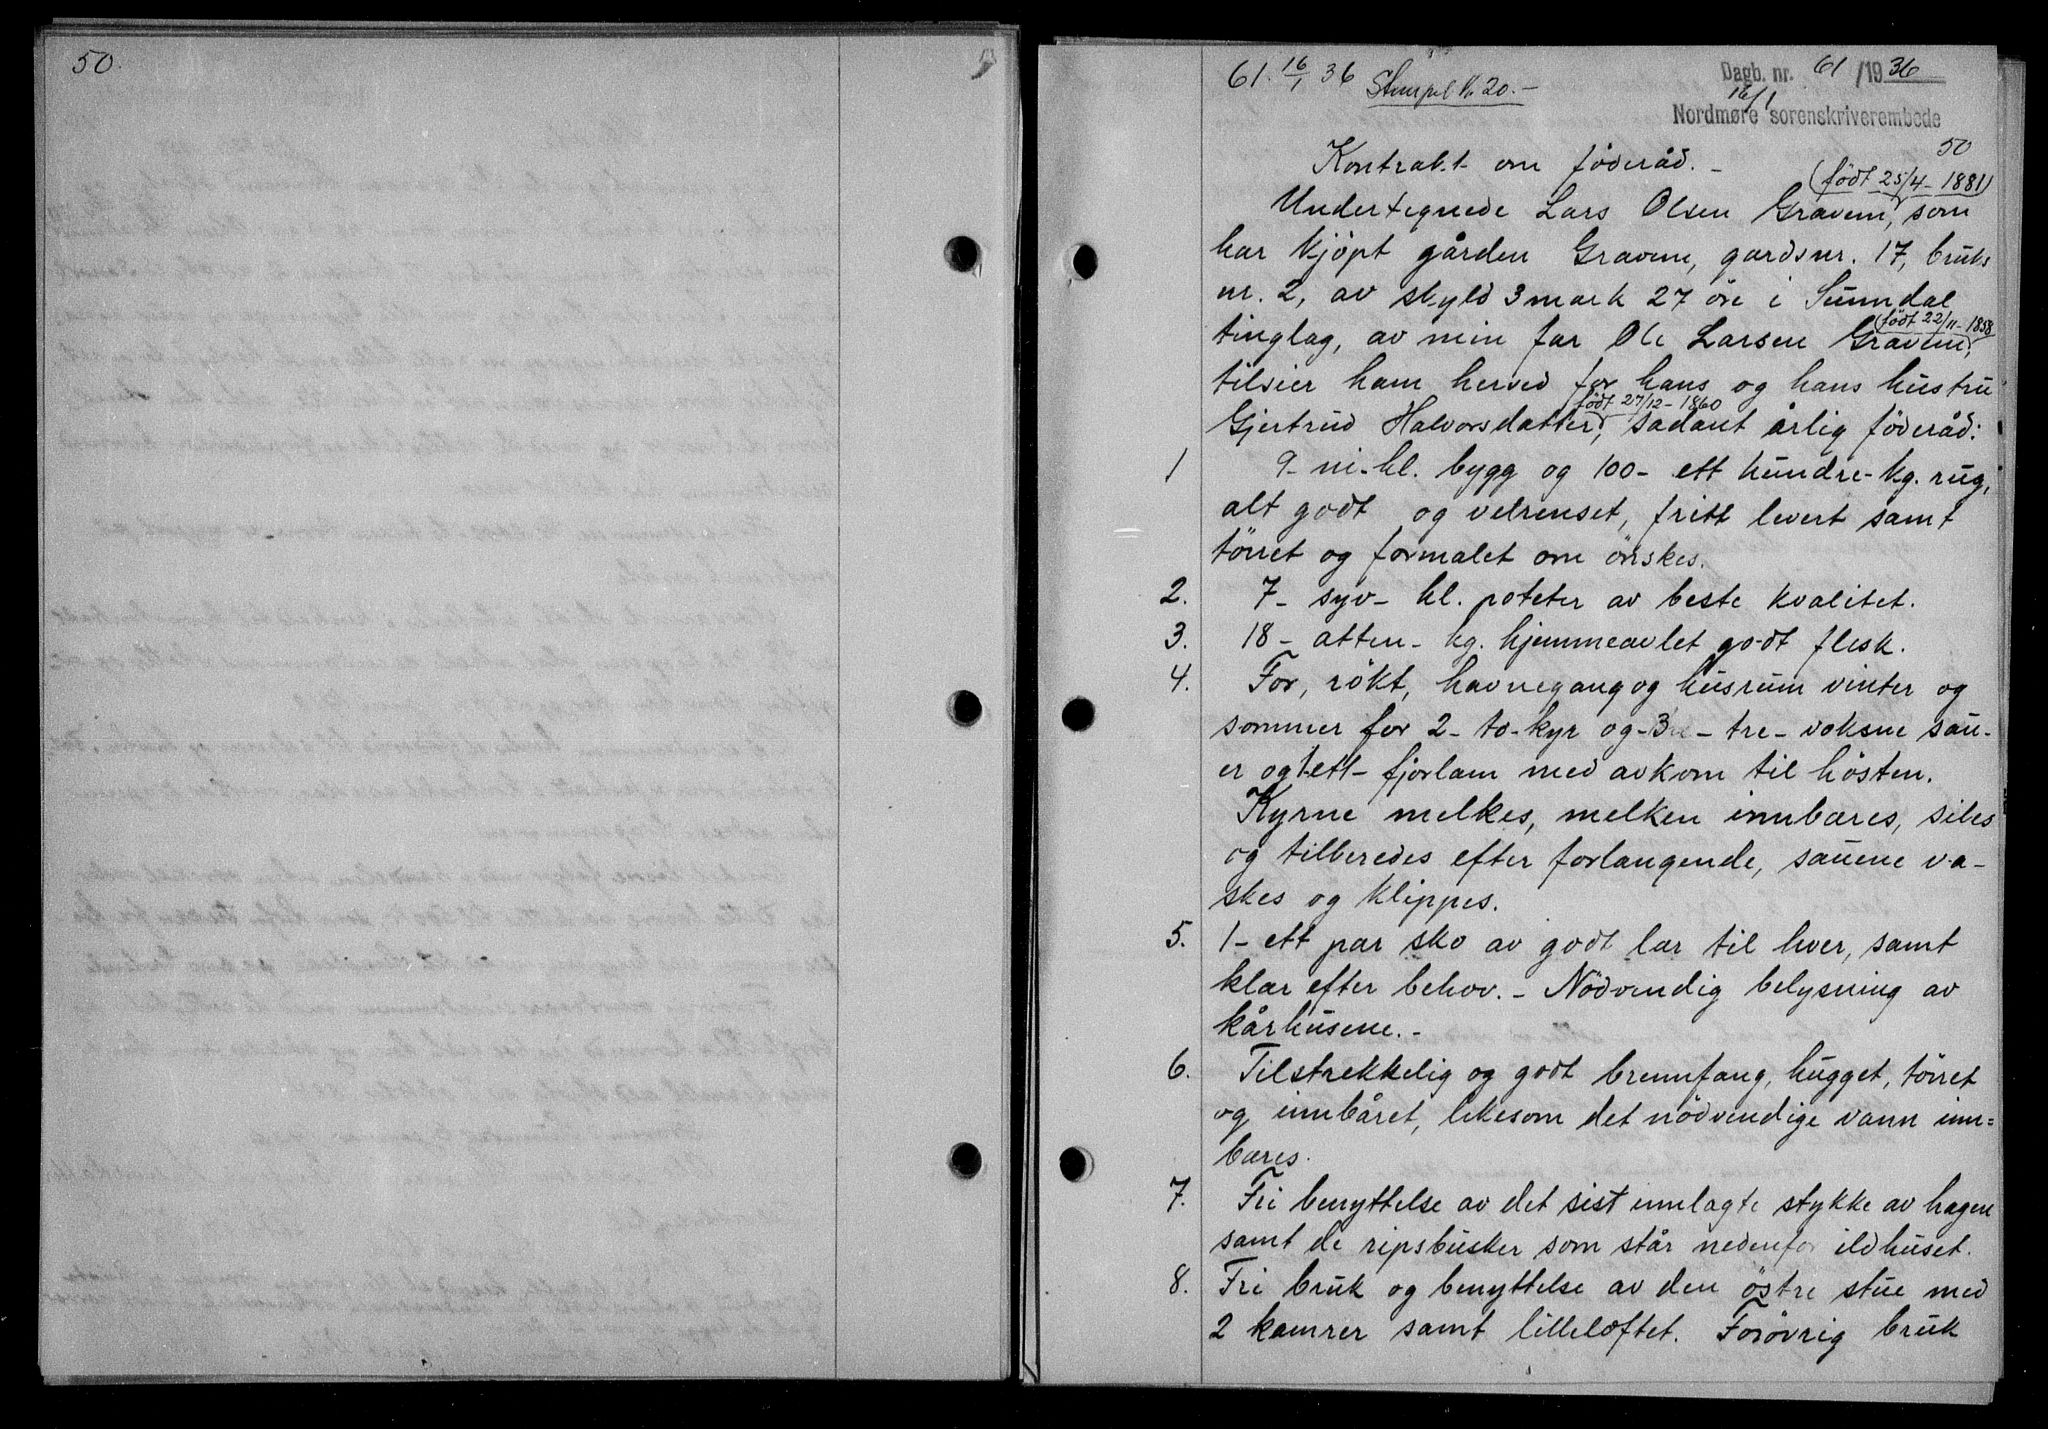 50.
61. 16/1 36 Stempel kr. 20.-
Dagb. nr. 61/1936
16/1
Nordmøre sorenskriverembede
50
Kontrakt om föderåd. -
(født 25/4 - 1881)
Undertegnede Lars Olsen Gravem, som
har kjöpt gården Gravem, gardsnr. 17, bruks
nr. 2, av skyld 3 mark 27 öre i Sunndal
tinglag, av min far Ole Larsen Gravem,
(født 22/11 - 1858
tilsier ham herved for hans og hans hustru
født 27/12 - 1860
Gjertrud Halvorsdatter, sådant årlig föderåd:
1 9 - ni - hl. bygg og 100 - ett hundre - kg. rug,
alt godt og velrenset, fritt levert samt
törret og formalet om önskes.
2. 7 - syv - hl. poteter av beste kvalitet.
3. 18 - atten - kg. hjemmeavlet godt flesk.
4. For, rökt, havnegang og husrum vinter og
sommer for 2 - to - kyr og - 3 - tre - voksne sau-
er og 1 - ett - fjorlam med avkom til hösten.
Kyrne melkes, melken innbæres, siles
og tilberedes efter forlangende, sauene va-
skes og klippes.
5. 1 - ett par sko av godt lær til hver, samt
klær efter behov. - Nödvendig belysning av
kårhusene. -
6. Tilstrekkelig og godt brennfang, hugget, törret
og innbåret, likesom det nödvendige vann inn=
bæres.
7. Fri benyttelse av det sist innlagte stykke av hagen
samt de ripsbusker som står nedenfor ildhuset.
8. Fri bruk og benyttelse av den östre stue med
2 kamrer samt lilleloftet. Forövrig bruk